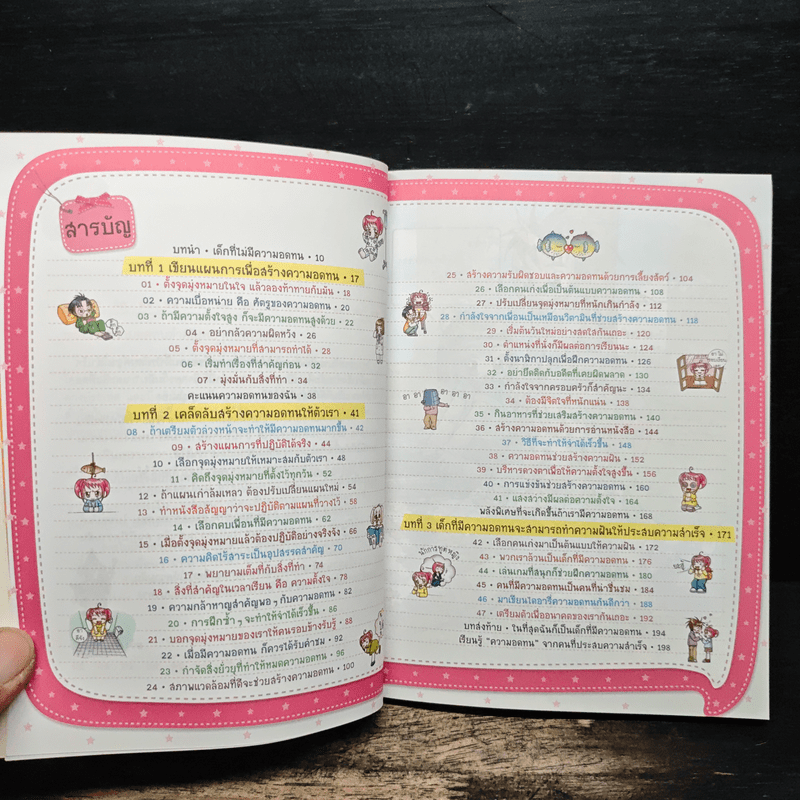 สารบัญ
บทนำ • เด็กที่ไม่มีความอดทน • 10
บทที่ 1 เขียนแผนการเพื่อสร้างความอดทน • 17
01 • ตั้งจุดมุ่งหมายในใจ แล้วลองท้าทายกับมัน • 18
02 • ความเบื่อหน่าย คือ ศัตรูของความอดทน • 20
03 • ถ้ามีความตั้งใจสูง ก็จะมีความอดทนสูงด้วย • 22
04 • อย่ากลัวความผิดหวัง • 26
05 • ตั้งจุดมุ่งหมายที่สามารถทำได้ • 28
06 • เริ่มทำเรื่องที่สำคัญก่อน • 32
07 • มุ่งมั่นกับสิ่งที่ทำ • 34
คะแนนความอดทนของฉัน • 38
บทที่ 2 เคล็ดลับสร้างความอดทนให้ตัวเรา • 41
08 • ถ้าเตรียมตัวล่วงหน้าจะทำให้มีความอดทนมากขึ้น • 42
09 • สร้างแผนการที่ปฏิบัติได้จริง • 44
10 • เลือกจุดมุ่งหมายให้เหมาะสมกับตัวเรา • 48
11 • คิดถึงจุดมุ่งหมายที่ตั้งไว้ทุกวัน • 52
12 • ถ้าแผนเก่าล้มเหลว ต้องปรับเปลี่ยนแผนใหม่ • 54
13 • ทำหนังสือสัญญาว่าจะปฏิบัติตามแผนที่วางไว้ • 58
14 • เลือกคบเพื่อนที่มีความอดทน • 62
15 • เมื่อตั้งจุดมุ่งหมายแล้วต้องปฏิบัติอย่างจริงจัง • 66
16 • ความคิดไร้สาระเป็นอุปสรรคสำคัญ • 70
17 • พยายามเต็มที่กับสิ่งที่ทำ • 74
18 • สิ่งที่สำคัญในเวลาเรียน คือ ความตั้งใจ • 78
19 • ความกล้าหาญสำคัญพอ ๆ กับความอดทน • 82
20 • การฝึกซ้ำ ๆ จะทำให้จำได้เร็วขึ้น • 86
21 • บอกจุดมุ่งหมายของเราให้คนรอบข้างรับรู้ • 88
22 • เมื่อมีความอดทน ก็ควรได้รับคำชม • 92
23 • กำจัดสิ่งยั่วยุที่ทำให้หมดความอดทน • 96
24 • สภาพแวดล้อมที่ดีจะช่วยสร้างความอดทน • 100
25 • สร้างความรับผิดชอบและความอดทนด้วยการเลี้ยงสัตว์ • 104
26 • เลือกคนเก่งเพื่อเป็นต้นแบบความอดทน • 108
27 • ปรับเปลี่ยนจุดมุ่งหมายที่หนักเกินกำลัง • 112
28 • กำลังใจจากเพื่อนเป็นเหมือนวิตามินที่ช่วยสร้างความอดทน • 118
29 • เริ่มต้นวันใหม่อย่างสดใสกันเถอะ • 120
30 • ตำแหน่งที่นั่งก็มีผลต่อการเรียนนะ • 124
31 • ตั้งนาฬิกาปลุกเพื่อฝึกความอดทน • 126
32 • อย่ายึดติดกับอดีตที่เคยผิดพลาด • 130
33 • กำลังใจจากครอบครัวก็สำคัญนะ • 134
34 • ต้องมีจิตใจที่หนักแน่น • 138
35 • กินอาหารที่ช่วยเสริมสร้างความอดทน • 140
36 • สร้างความอดทนด้วยการอ่านหนังสือ • 144
37 • วิธีที่จะทำให้จำได้เร็วขึ้น • 148
38 • ความอดทนช่วยสร้างความฝัน • 152
39 • บริหารดวงตาเพื่อให้ความตั้งใจสูงขึ้น • 156
40 • การแข่งขันช่วยสร้างความอดทน • 160
41 • แสงสว่างมีผลต่อความตั้งใจ • 164
พลังพิเศษที่จะเกิดขึ้นถ้าเรามีความอดทน • 168
บทที่ 3 เด็กที่มีความอดทนจะสามารถทำความฝันให้ประสบความสำเร็จ • 171
42 • เลือกคนเก่งมาเป็นต้นแบบให้ความฝัน • 172
43 • พวกเราล้วนเป็นเด็กที่มีความอดทน • 176
44 • เล่นเกมที่สนุกก็ช่วยฝึกความอดทน • 180
45 • คนที่มีความอดทนเป็นคนที่น่าชื่นชม • 184
46 • มาเขียนไดอารี่ความอดทนกันดีกว่า • 188
47 • เตรียมตัวเพื่ออนาคตของเรากันเถอะ • 192
บทส่งท้าย • ในที่สุดฉันก็เป็นเด็กที่มีความอดทน • 194
เรียนรู้ "ความอดทน" จากคนที่ประสบความสำเร็จ • 198
อา อา อา อา อา